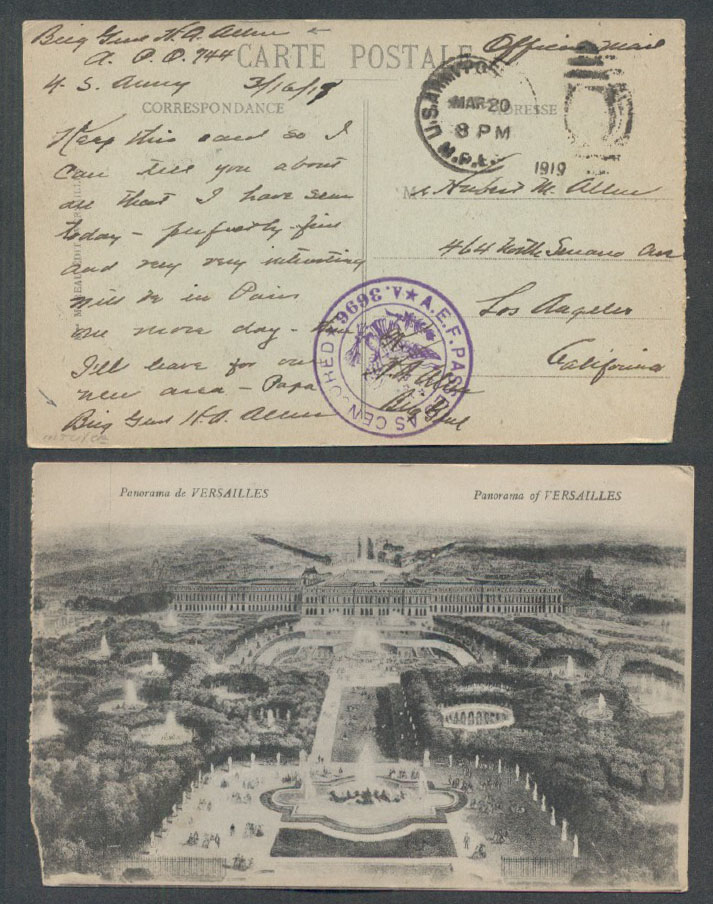 Brig Genl H. A. Allen
A. P. O. 744
U. S. Army 3/16/19
Official Mail
CARTE POSTALE
CORRESPONDANCE
ADRESSE
U.S. ARMY POST
MAR 20
8 PM
M.P.E.
1919
Keep this card so I
can tell you about
all that I have seen
today - perfectly fine
and very very interesting
Will be in Paris
one more day - then
I'll leave for our
new area - Papa
Brig Genl H. A. Allen
M
Hubert M. Allen
464 North Serrano Ave
Los Angeles
California
A.E.F. PASSED AS CENSORED A.3696
H. A. Allen
Brig Genl
Panorama de VERSAILLES
Panorama of VERSAILLES